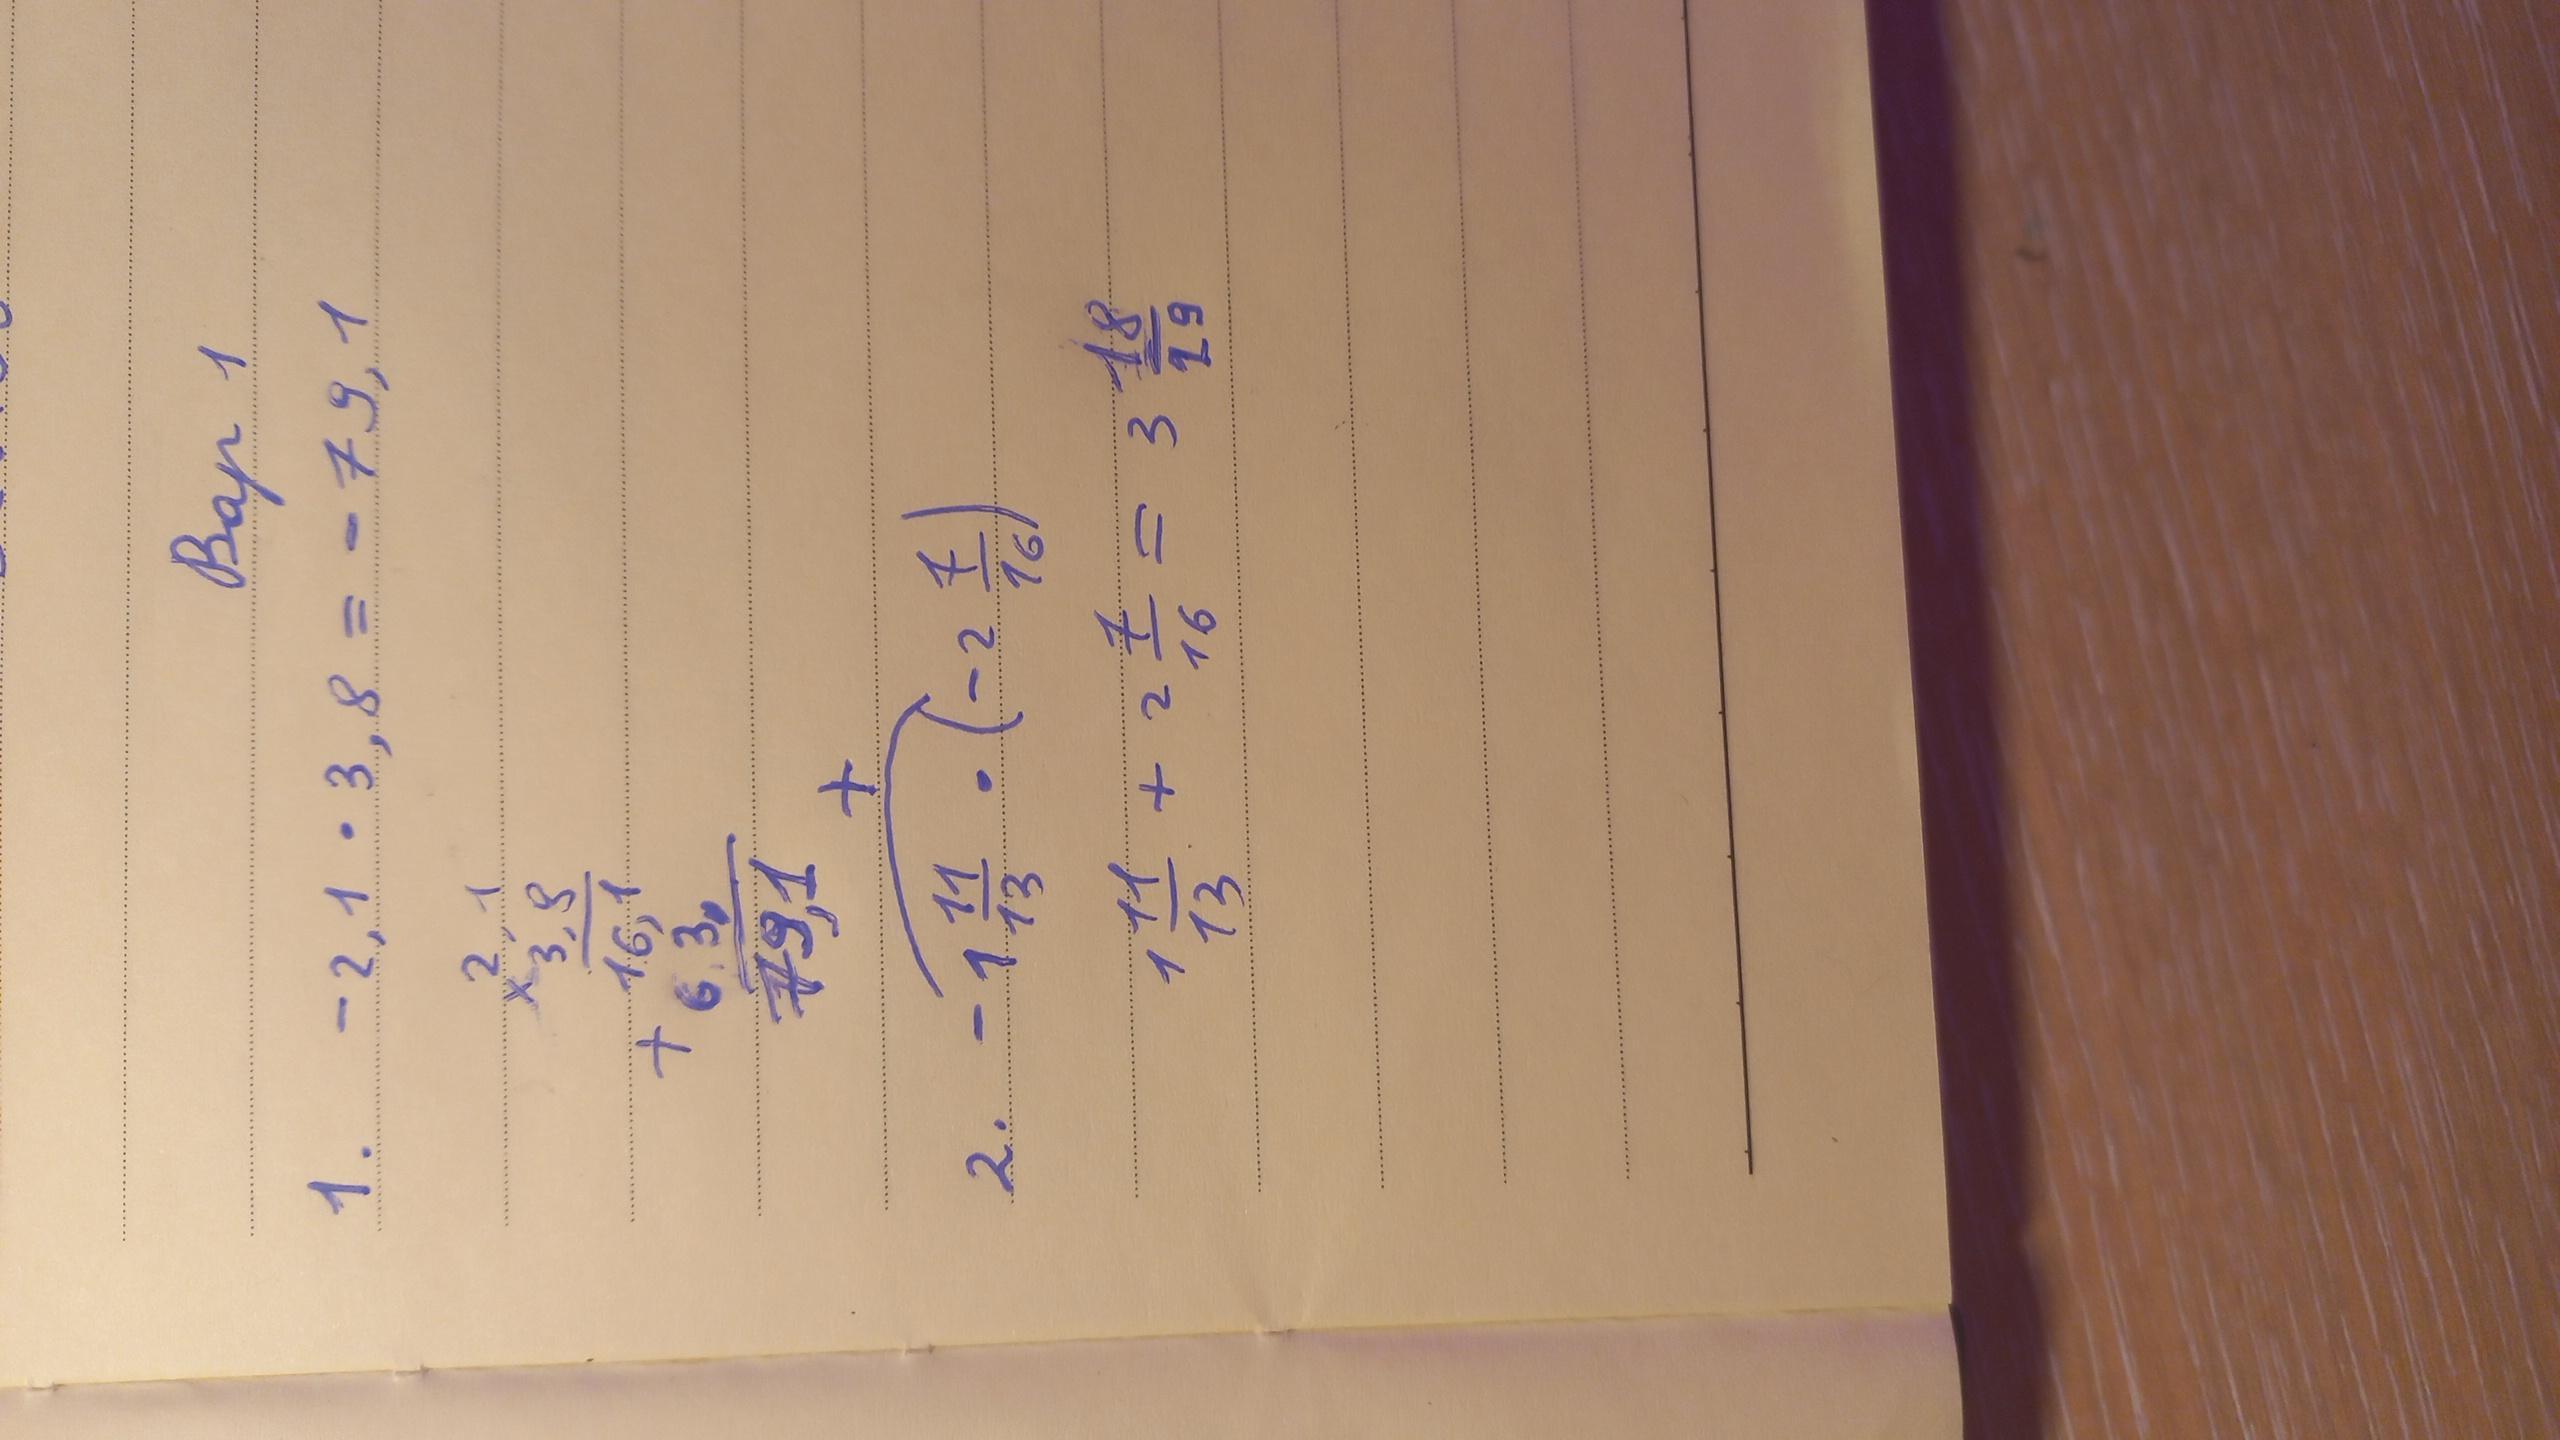 Вар 1
1. -2,1 · 3,8 = -79,1
2,1
× 3,8
16,1
+ 63,
79,1
+
2. -1 11/13 · (-2 7/16)
1 11/13 + 2 7/16 = 3 18/29